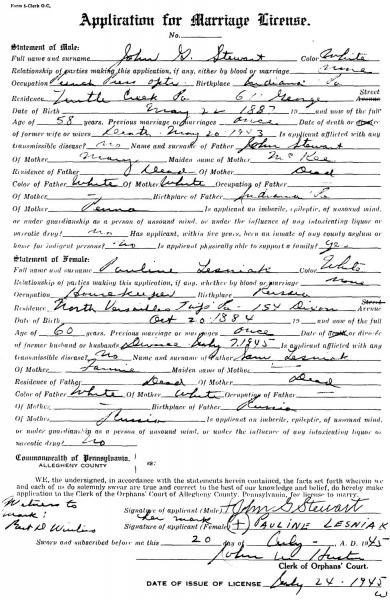 Form 5-Clerk O.C.
Application for Marriage License.
No.
Statement of Male:
Full name and surname John G. Stewart Color White
Relationship of parties making this application, if any, either by blood or marriage none
Occupation Punch Press Opr. Birthplace Indiana Pa
Residence Turtle Creek Pa 611 George Street Avenue
Date of Birth May 22 1887 and none of the full
Age of 58 years. Previous marriage or marriages once Date of death or
of former wife or wives Death May 20 1943 Is applicant afflicted with any
transmissible disease? no Name and surname of Father John Stewart
Of Mother Mary Maiden name of Mother McKee
Residence of Father Dead Of Mother Dead
Color of Father White Of Mother White Occupation of Father
Of Mother - Birthplace of Father Indiana Pa
Of Mother Penna Is applicant an imbecile, epileptic, of unsound mind,
or under guardianship as a person of unsound mind, or under the influence of any intoxicating liquor
or narcotic drug? no Has applicant, within five years, been an inmate of any county asylum or
home for indigent persons? no Is applicant physically able to support a family? yes
Statement of Female:
Full name and surname Pauline Lesniak Color White
Relationship of parties making this application, if any, whether by blood or marriage none
Occupation Housekeeper Birthplace Russia
Residence North Versailles Twp. Pa - 154 Dixon Street Avenue
Date of Birth Oct 20 1884 and none of the full
Age of 60 years. Previous marriage or marriages once Date of or divorce
of former husband or husbands Divorce July 7 1945 Is applicant afflicted with any
transmissible disease? no Name and surname of Father Sam Lesniak
Of Mother Fannie Maiden name of Mother -
Residence of Father Dead Of Mother Dead
Color of Father White Of Mother White Occupation of Father -
Of Mother - Birthplace of Father Russia
Of Mother Russia Is applicant an imbecile, epileptic, of unsound mind,
or under guardianship as a person of unsound mind, or under the influence of any intoxicating liquor
or narcotic drug? no
Commonwealth of Pennsylvania,
ALLEGHENY COUNTY ss:
WE, the undersigned, in accordance with the statements herein contained, the facts set forth wherein we
and each of us do solemnly swear are true and correct to the best of our knowledge and belief, do hereby make
application to the Clerk of the Orphans' Court of Allegheny County, Pennsylvania, for license to marry.
Witness to mark:
Signature of applicant (Male) John G Stewart
her mark
Signature of applicant (Female) (+) PAULINE LESNIAK
Sworn and subscribed before me this 20 day of July A. D. 1945
John
Clerk of Orphans' Court.
DATE OF ISSUE OF LICENSE July 24-1945